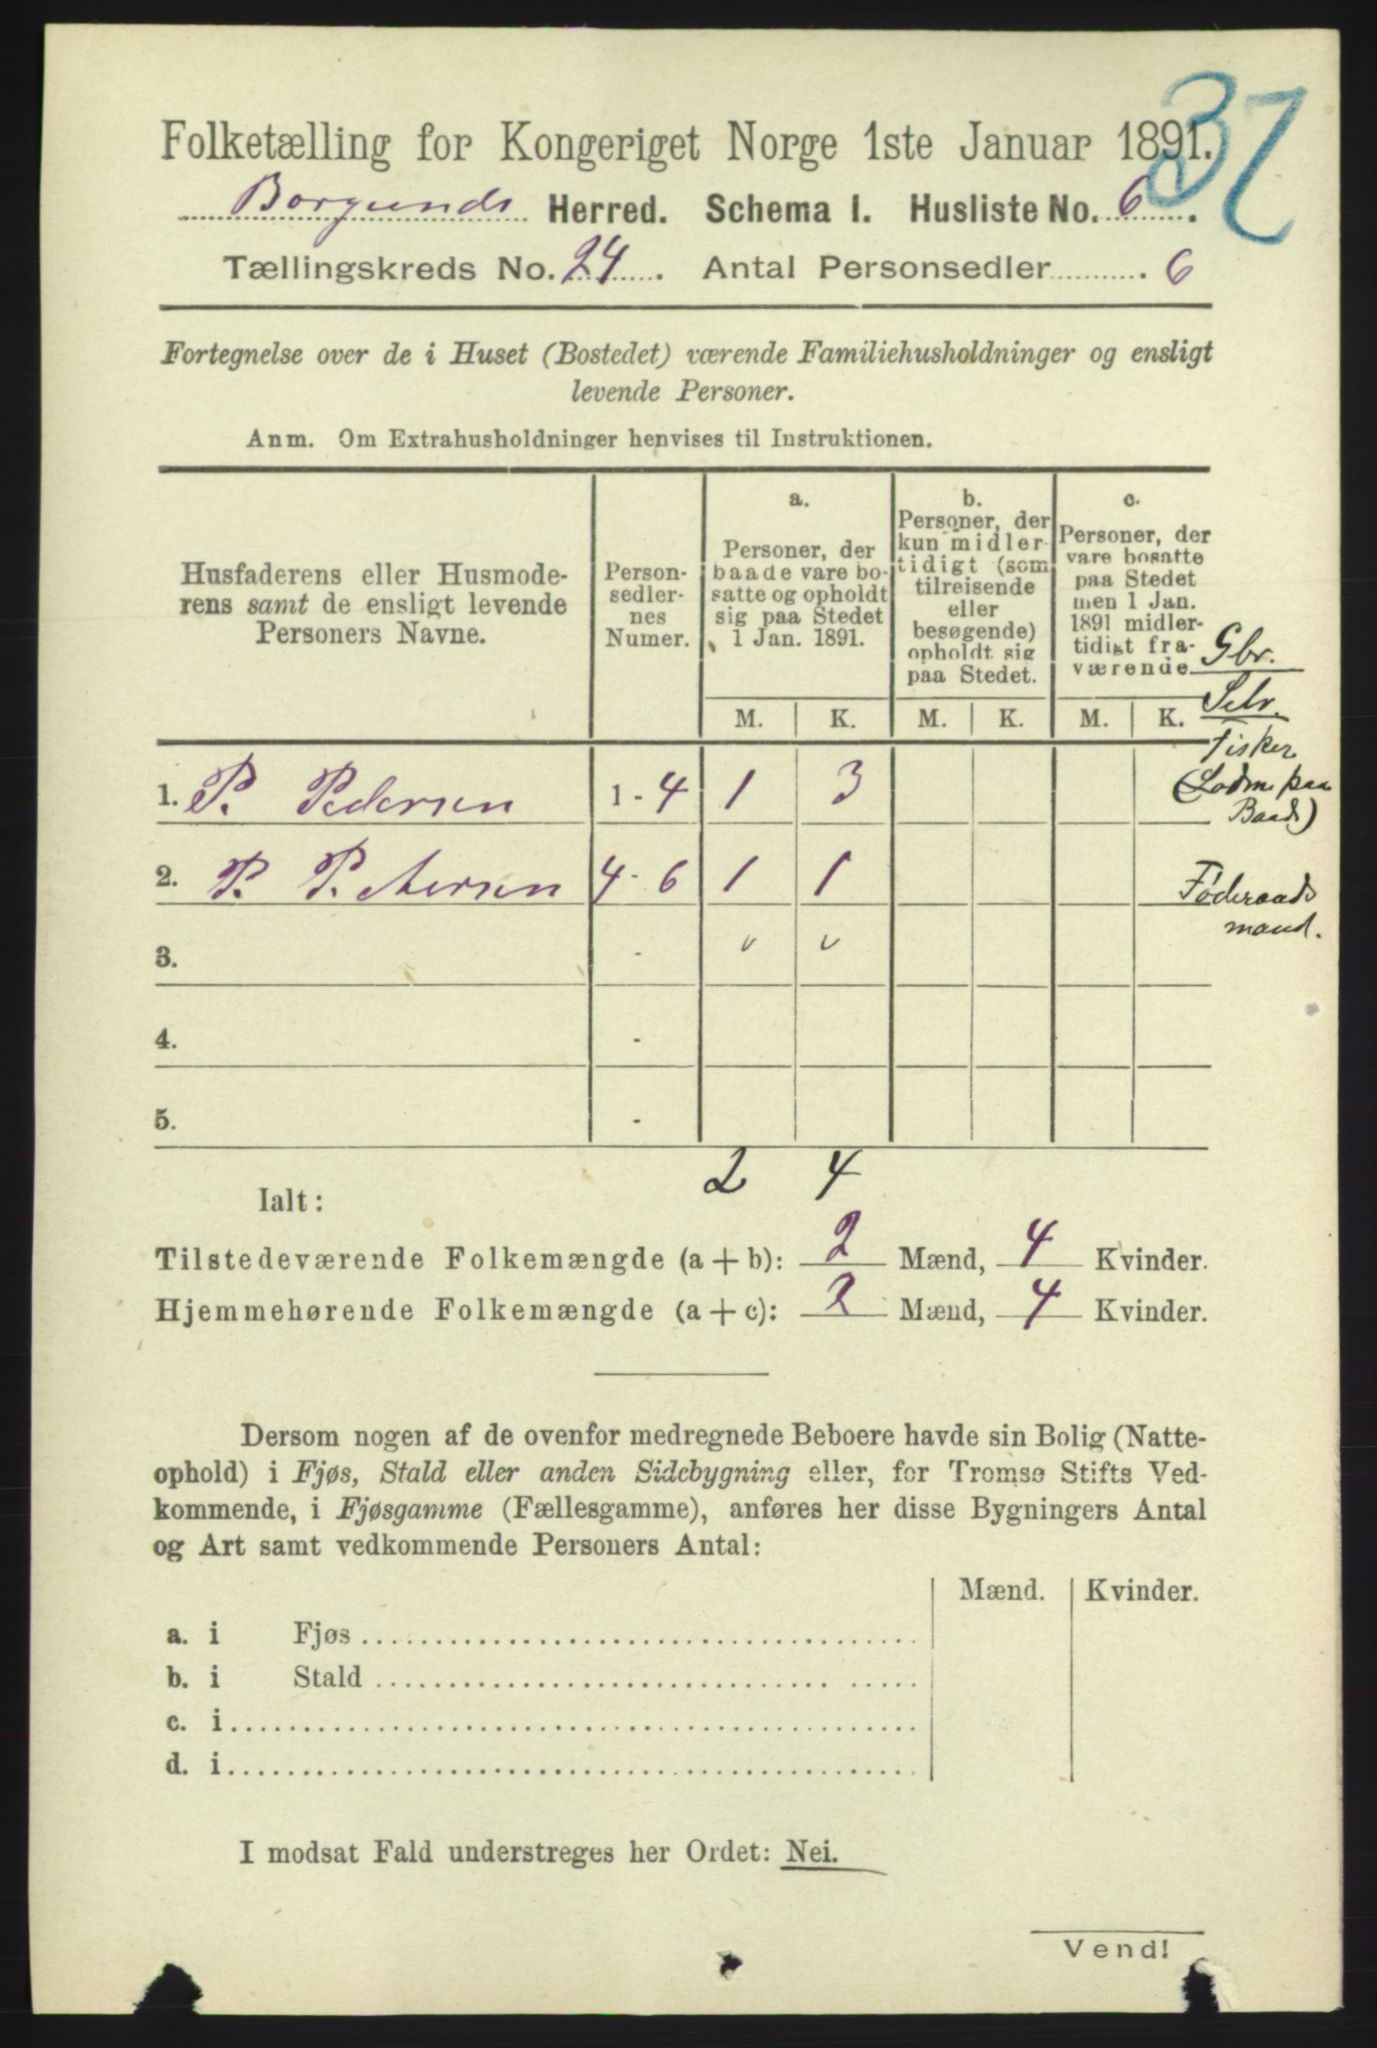 37
Folketælling for Kongeriget Norge 1ste Januar 1891.
Borgunds Herred. Schema I. Husliste No. 6.
Tællingskreds No. 24. Antal Personsedler . 6
Fortegnelse over de i Huset (Bostedet) værende Familiehusholdninger og ensligt
levende Personer.
Anm. Om Extrahusholdninger henvises til Instruktionen.
Husfaderens eller Husmode-
rens samt de ensligt levende
Personers Navne.
Person-
sedler-
nes
Numer.
a.
Personer, der
baade vare bo-
satte og opholdt
sig paa Stedet
1 Jan. 1891.
b.
Personer, der
kun midler-
tidigt (som
tilreisende
eller
besøgende)
opholdt sig
paa Stedet.
c.
Personer, der
vare bosatte
paa Stedet
men 1 Jan.
1891 midler-
tidigt fra-
værende
M. K. M. K. M. K.
Gbr.
Selv.
Fisker
(Lodm. paa
Baad)
1. P. Pedersen 1 - 4 1 3
2. P. P. 4 - 6 1 1
Føderaads
mand.
3. - " "
4. -
5. -
2 4
Ialt:
Tilstedeværende Folkemængde (a + b): 2 Mænd, 4 Kvinder.
Hjemmehørende Folkemængde (a + c): 2 Mænd, 4 Kvinder.
Dersom nogen af de ovenfor medregnede Beboere havde sin Bolig (Natte-
ophold) i Fjøs, Stald eller anden Sidebygning eller, for Tromsø Stifts Ved-
kommende, i Fjøsgamme (Fællesgamme), anføres her disse Bygningers Antal
og Art samt vedkommende Personers Antal:
Mænd. Kvinder.
a. i Fjøs
b. i Stald
c. i
d. i
I modsat Fald understreges her Ordet: Nei.
Vend!